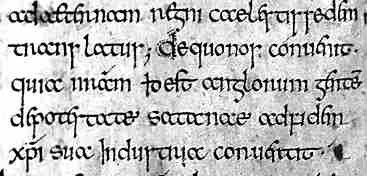 ad aeternam regni caelestis sedem
translatus; De quo nos conuenit.
quia nr̄am id est anglorum gentē
de potestate satanae ad fidem
xp̄i sua industria conuertit.